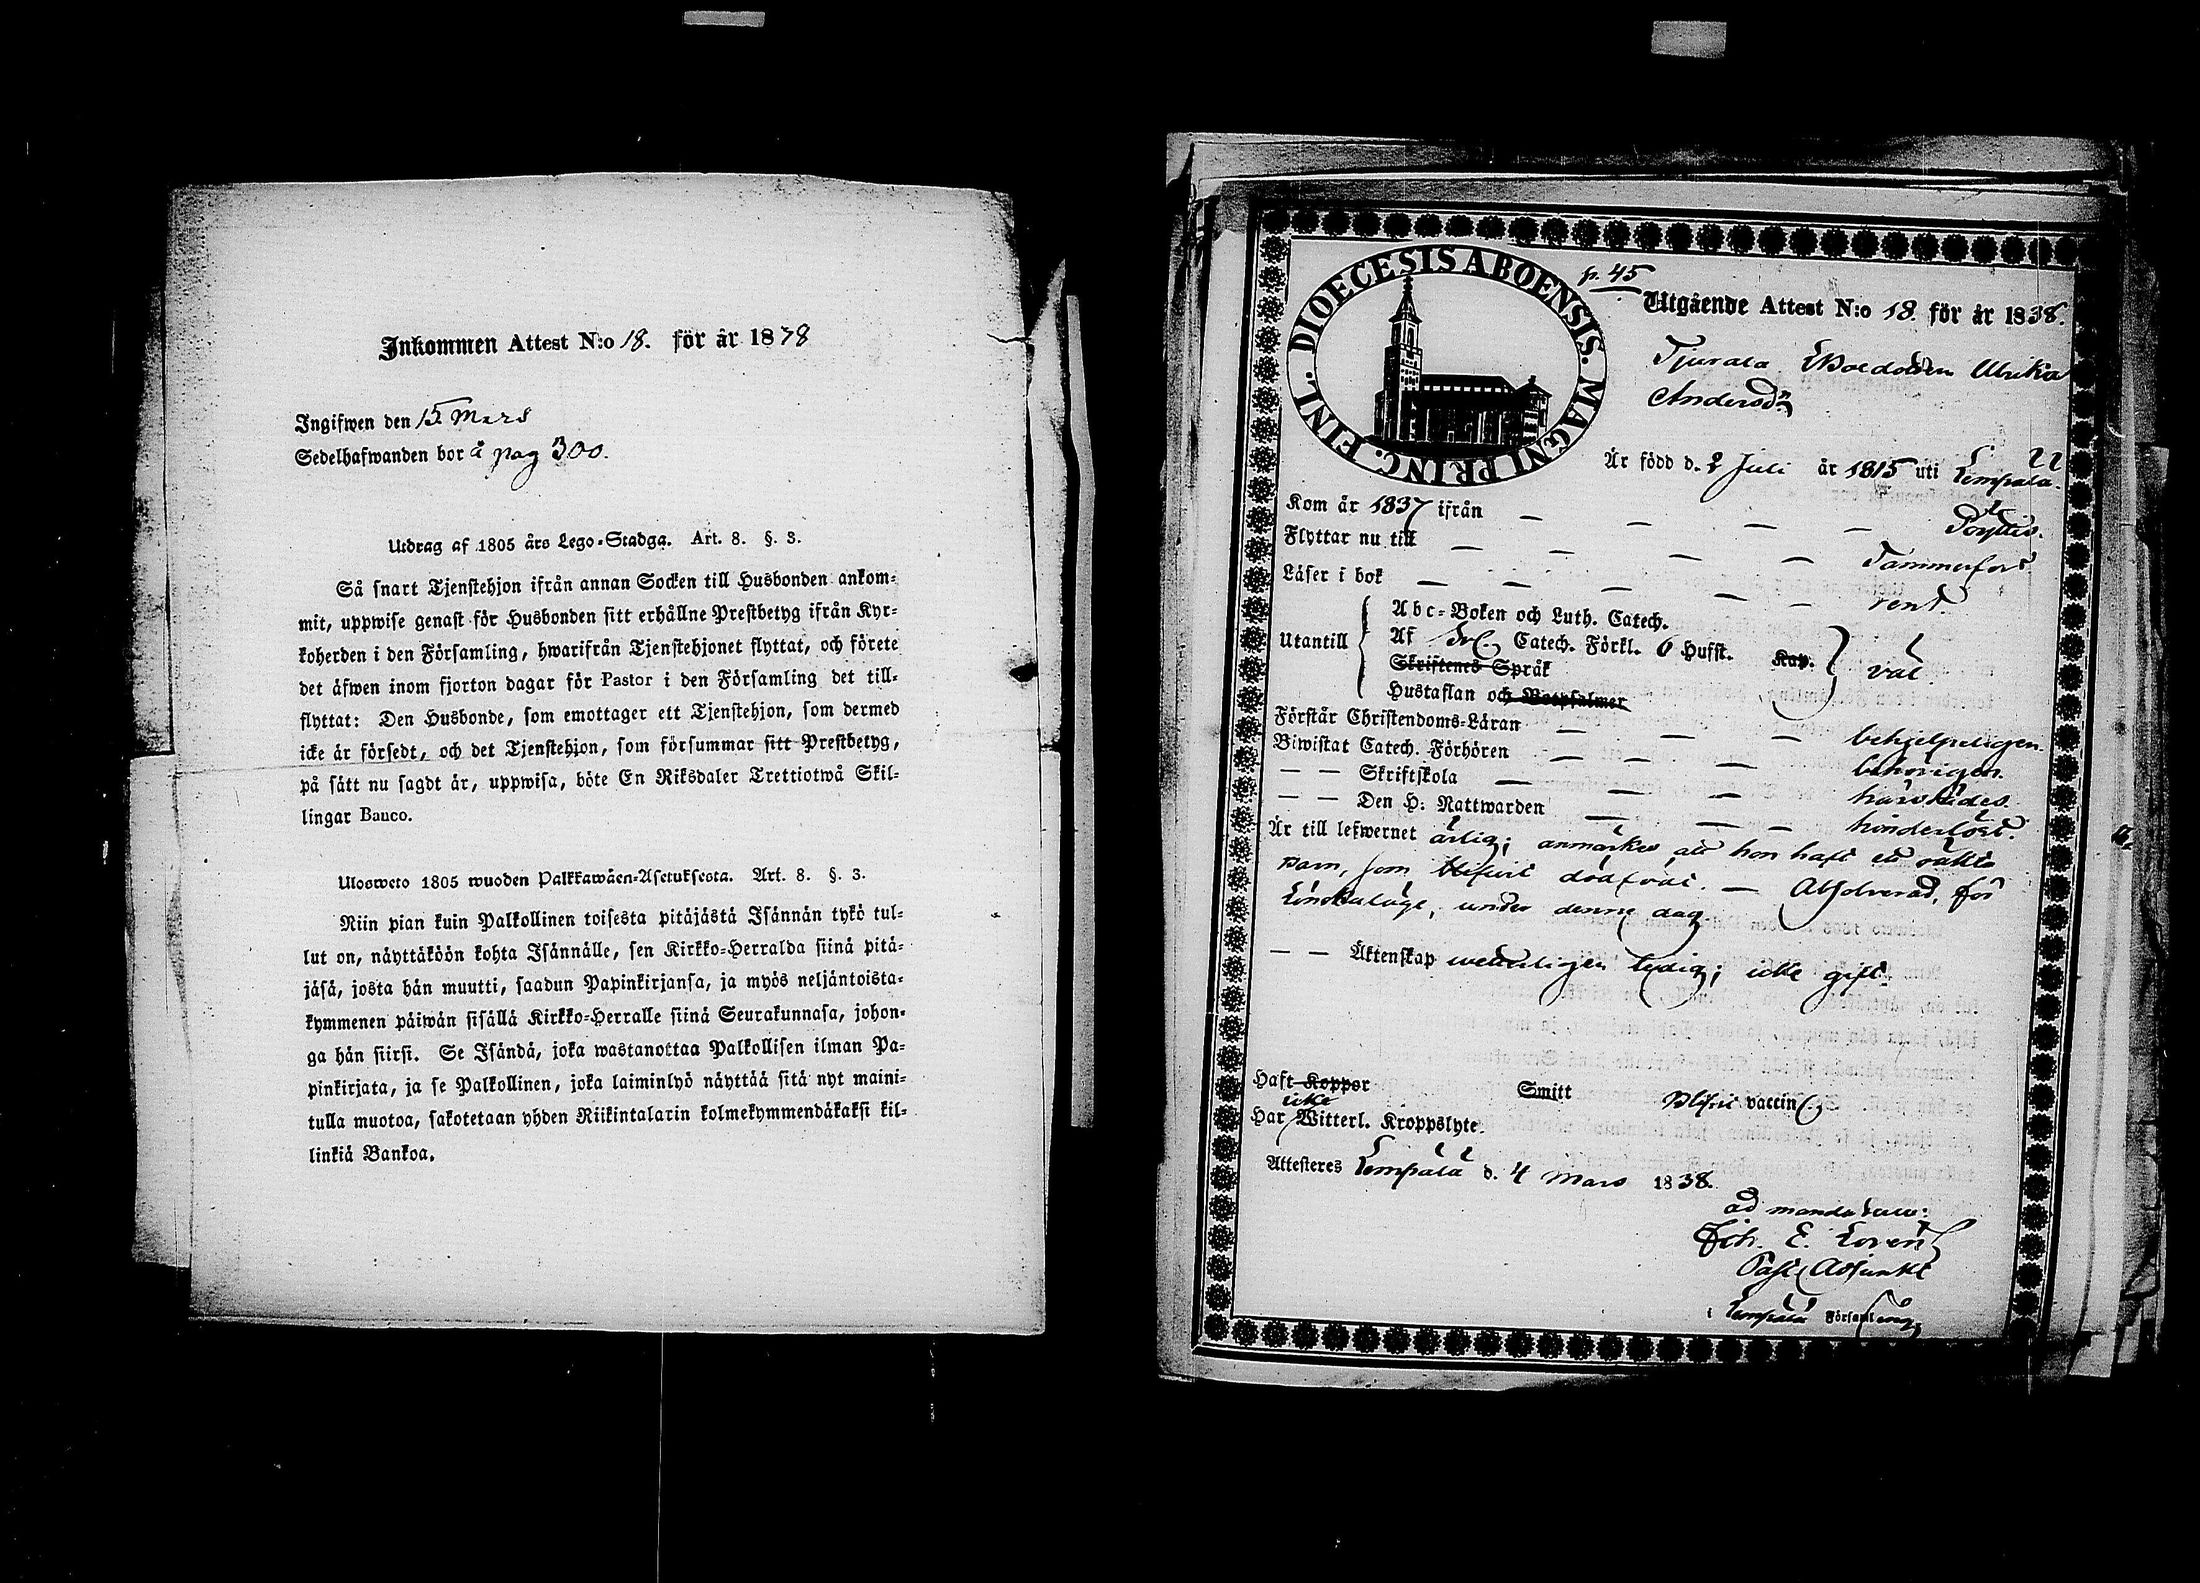 Inkommen Attest N:o 18. för år 1838
Ingifwen den 15 Mars
Sedelhafwanden bor å pag 300.
Utdrag af 1805 års Lego-Stadga. Art. 8. §. 3.
Så snart Tjenstehjon ifrån annan Socken till Husbonden ankom-
mit, uppwise genast för Husbonden sitt erhållne Prestbetyg ifrån Kyr-
koherden i den Församling, hwarifrån Tjenstehjonet flyttat, och förete
det äfwen inom fjorton dagar för Pastor i den Församling det till-
flyttat: Den Husbonde, som emottager ett Tjenstehjon, som dermed
icke är försedt, och det Tjenstehjon, som försummar sitt Prestbetyg,
på sätt nu sagdt är, uppwisa, böte En Riksdaler Trettiotwå Skil-
lingar Banco.
Ulosweto 1805 wuoden Palkkawäen-Asetuksesta. Art. 8. §. 3.
Niin pian kuin Palkollinen toisesta pitäjästä Isännän tykö tul-
lut on, näyttäköön kohta Isännälle, sen Kirkko-Herralda siinä pitä-
jäsä, josta hän muutti, saadun Papinkirjansa, ja myös neljäntoista-
kymmenen päiwän sisällä Kirkko-Herralle siinä Seurakunnasa, johon-
ga hän siirsi. Se Isändä, joka wastanottaa Palkollisen ilman Pa-
pinkirjata, ja se Palkollinen, joka laiminlyö näyttää sitä nyt maini-
tulla muotoa, sakotetaan yhden Riikintalarin kolmekymmendäkaksi kil-
linkiä Bankoa.
DIOECESIS ABOENSIS. MAGNI PRINC. FINL.
p. 45
Utgående Attest N:o 18. för år 1838.
Ulrika
Andersdr
Är född d. 2 Juli år 1815 uti Lempälä.
Kom år 1837 ifrån — — — —
Flyttar nu till — — — — Tammerfors
Läser i bok — — — — — rent.
Utantill
Abc-Boken och Luth. Catech.
Af Catech. Förkl. 6 Hufst. Kap.
Skriftenes Språk
väl.
Hustaflan och Botpsalmer
Förstår Christendoms-Läran — — — behjelpeligen.
Biwistat Catech. Förhören — — — — behörigen.
— — Skriftskola — — —
— — Den H: Nattwarden — — — hinderlöst.
Är till lefwernet ärlig; anmärkes att hon haft ett oäkta
barn, som blifvit dödfödt. — Absolverad, för
Lönskaläge, under denne dag
— — Äktenskap wetterligen ledig; icke gift.
Haft Koppor Smitt Blifvit vaccin.
icke
Har Witterl. Kroppslyte.
Attesteres Lempälä d. 4 Mars 1838.
ad mandatum:
Joh. E. Lorén
Past. Adjunkt
i Lempälä Församling